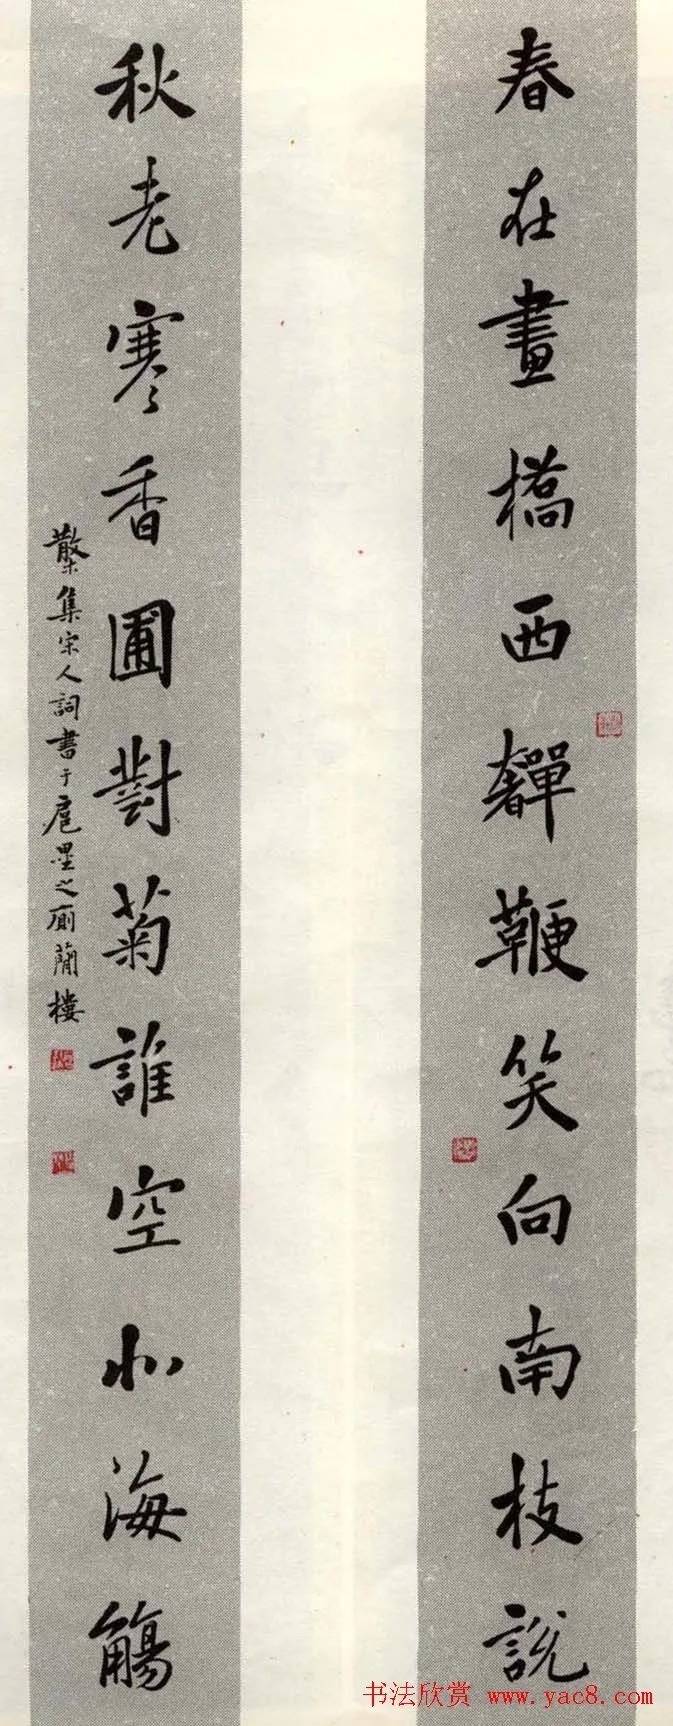 春在畫橋西奲鞭笑向南枝說
秋老寒香圃對菊誰空北海觴
散木集宋人詞書于扈壘之廁簡樓
书法欣赏 www.yac8.com